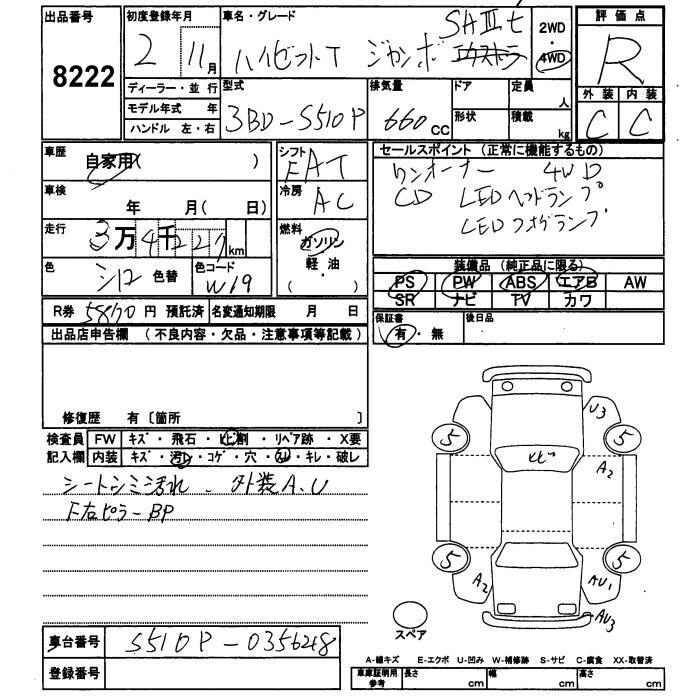 出品番号
8222
初度登録年月
2 11月
車名・グレード
ハイゼットT ジャンボ エクストラ
SAⅢt
2WD
・
4WD
評価点
R
外装 内装
C C
ディーラー・並行
モデル年式 年
ハンドル 左・右
型式
3BD-S510P
排気量
660 CC
ドア
形状
定員
人
積載
kg
車歴
自家用( )
車検
年 月( 日)
走行
3万4千227km
色
シロ 色替
色コード
W19
シフト
FAT
冷房
AC
燃料
ガソリン
軽・油
( )
セールスポイント (正常に機能するもの)
ワンオーナー 4WD
CD LEDヘッドランプ
LEDフォグランプ
装備品 (純正品に限る)
PS PW ABS エアB AW
SR ナビ TV カワ
保証書
有・無
後日品
R券 5870円 預託済
名変通知期限 月 日
出品店申告欄 (不良内容・欠品・注意事項等記載)
修復歴 有〔箇所 〕
検査員
記入欄
FW キズ・飛石・ヒビ割・リペア跡・X要
内装 キズ・汚レ・コゲ・穴・ ・キレ・破レ
シートシミ汚れ、外装A.U
F右ピラーBP
U3
5 5
A2
ヒビ
5 5
A2 AU1
AU3
スペア
車台番号
S510P-0356248
登録番号
A-線キズ E-エクボ U-凹み W-補修跡 S-サビ C-腐食 XX-取替済
車庫証明用
参考
長さ cm
幅 cm
高さ cm